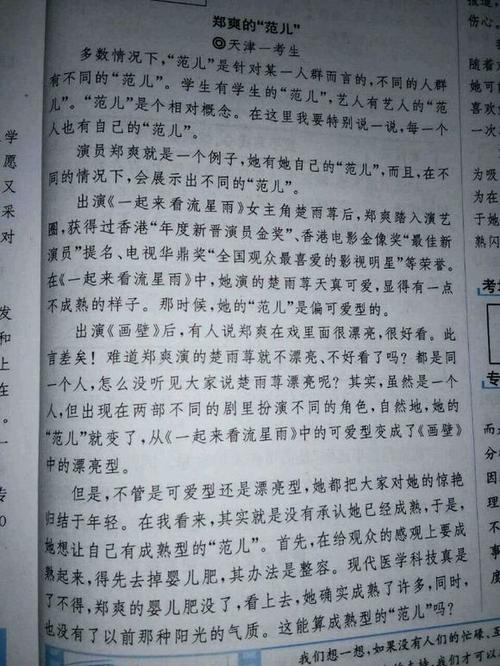 郑爽的“范儿”
◎天津一考生
多数情况下，“范儿”是针对某一人群而言的，不同的人群
有不同的“范儿”。学生有学生的“范儿”，艺人有艺人的“范
儿”。“范儿”是个相对概念。在这里我要特别说一说，每一个
人也有自己的“范儿”。
演员郑爽就是一个例子，她有她自己的“范儿”，而且，在不
同的情况下，会展示出不同的“范儿”。
出演《一起来看流星雨》女主角楚雨荨后，郑爽踏入演艺
圈，获得过香港“年度新晋演员金奖”、香港电影金像奖“最佳新
演员”提名、电视华鼎奖“全国观众最喜爱的影视明星”等荣誉。
在《一起来看流星雨》中，她演的楚雨荨天真可爱，显得有一点
不成熟的样子。那时候，她的“范儿”是偏可爱型的。
出演《画壁》后，有人说郑爽在戏里面很漂亮，很好看。此
言差矣！难道郑爽演的楚雨荨就不漂亮、不好看了吗？都是同
一个人，怎么没听见大家说楚雨荨漂亮呢？其实，虽然是一个
人，但出现在两部不同的剧里扮演不同的角色，自然地，她的
“范儿”就变了，从《一起来看流星雨》中的可爱型变成了《画壁》
中的漂亮型。
但是，不管是可爱型还是漂亮型，她都把大家对她的惊艳
归结于年轻。在我看来，其实就是没有承认她已经成熟，于是，
她想让自己有成熟型的“范儿”。首先，在给观众的感观上要成
熟起来，得先去掉婴儿肥，其办法是整容。现代医学科技真是
了不得，郑爽的婴儿肥没了，看上去，她确实成熟了许多，同时，
也没有了以前那种阳光的气质。这能算成熟型的“范儿”吗？
我们想一想，如果没有人们的忙碌、
学
愿
又
采
对
发
和
上
在
。
一
传
0
伤心。
随着
她可
喜欢
次
为吸
为在
于她
熟闪
考
专
而
分
因
事
度